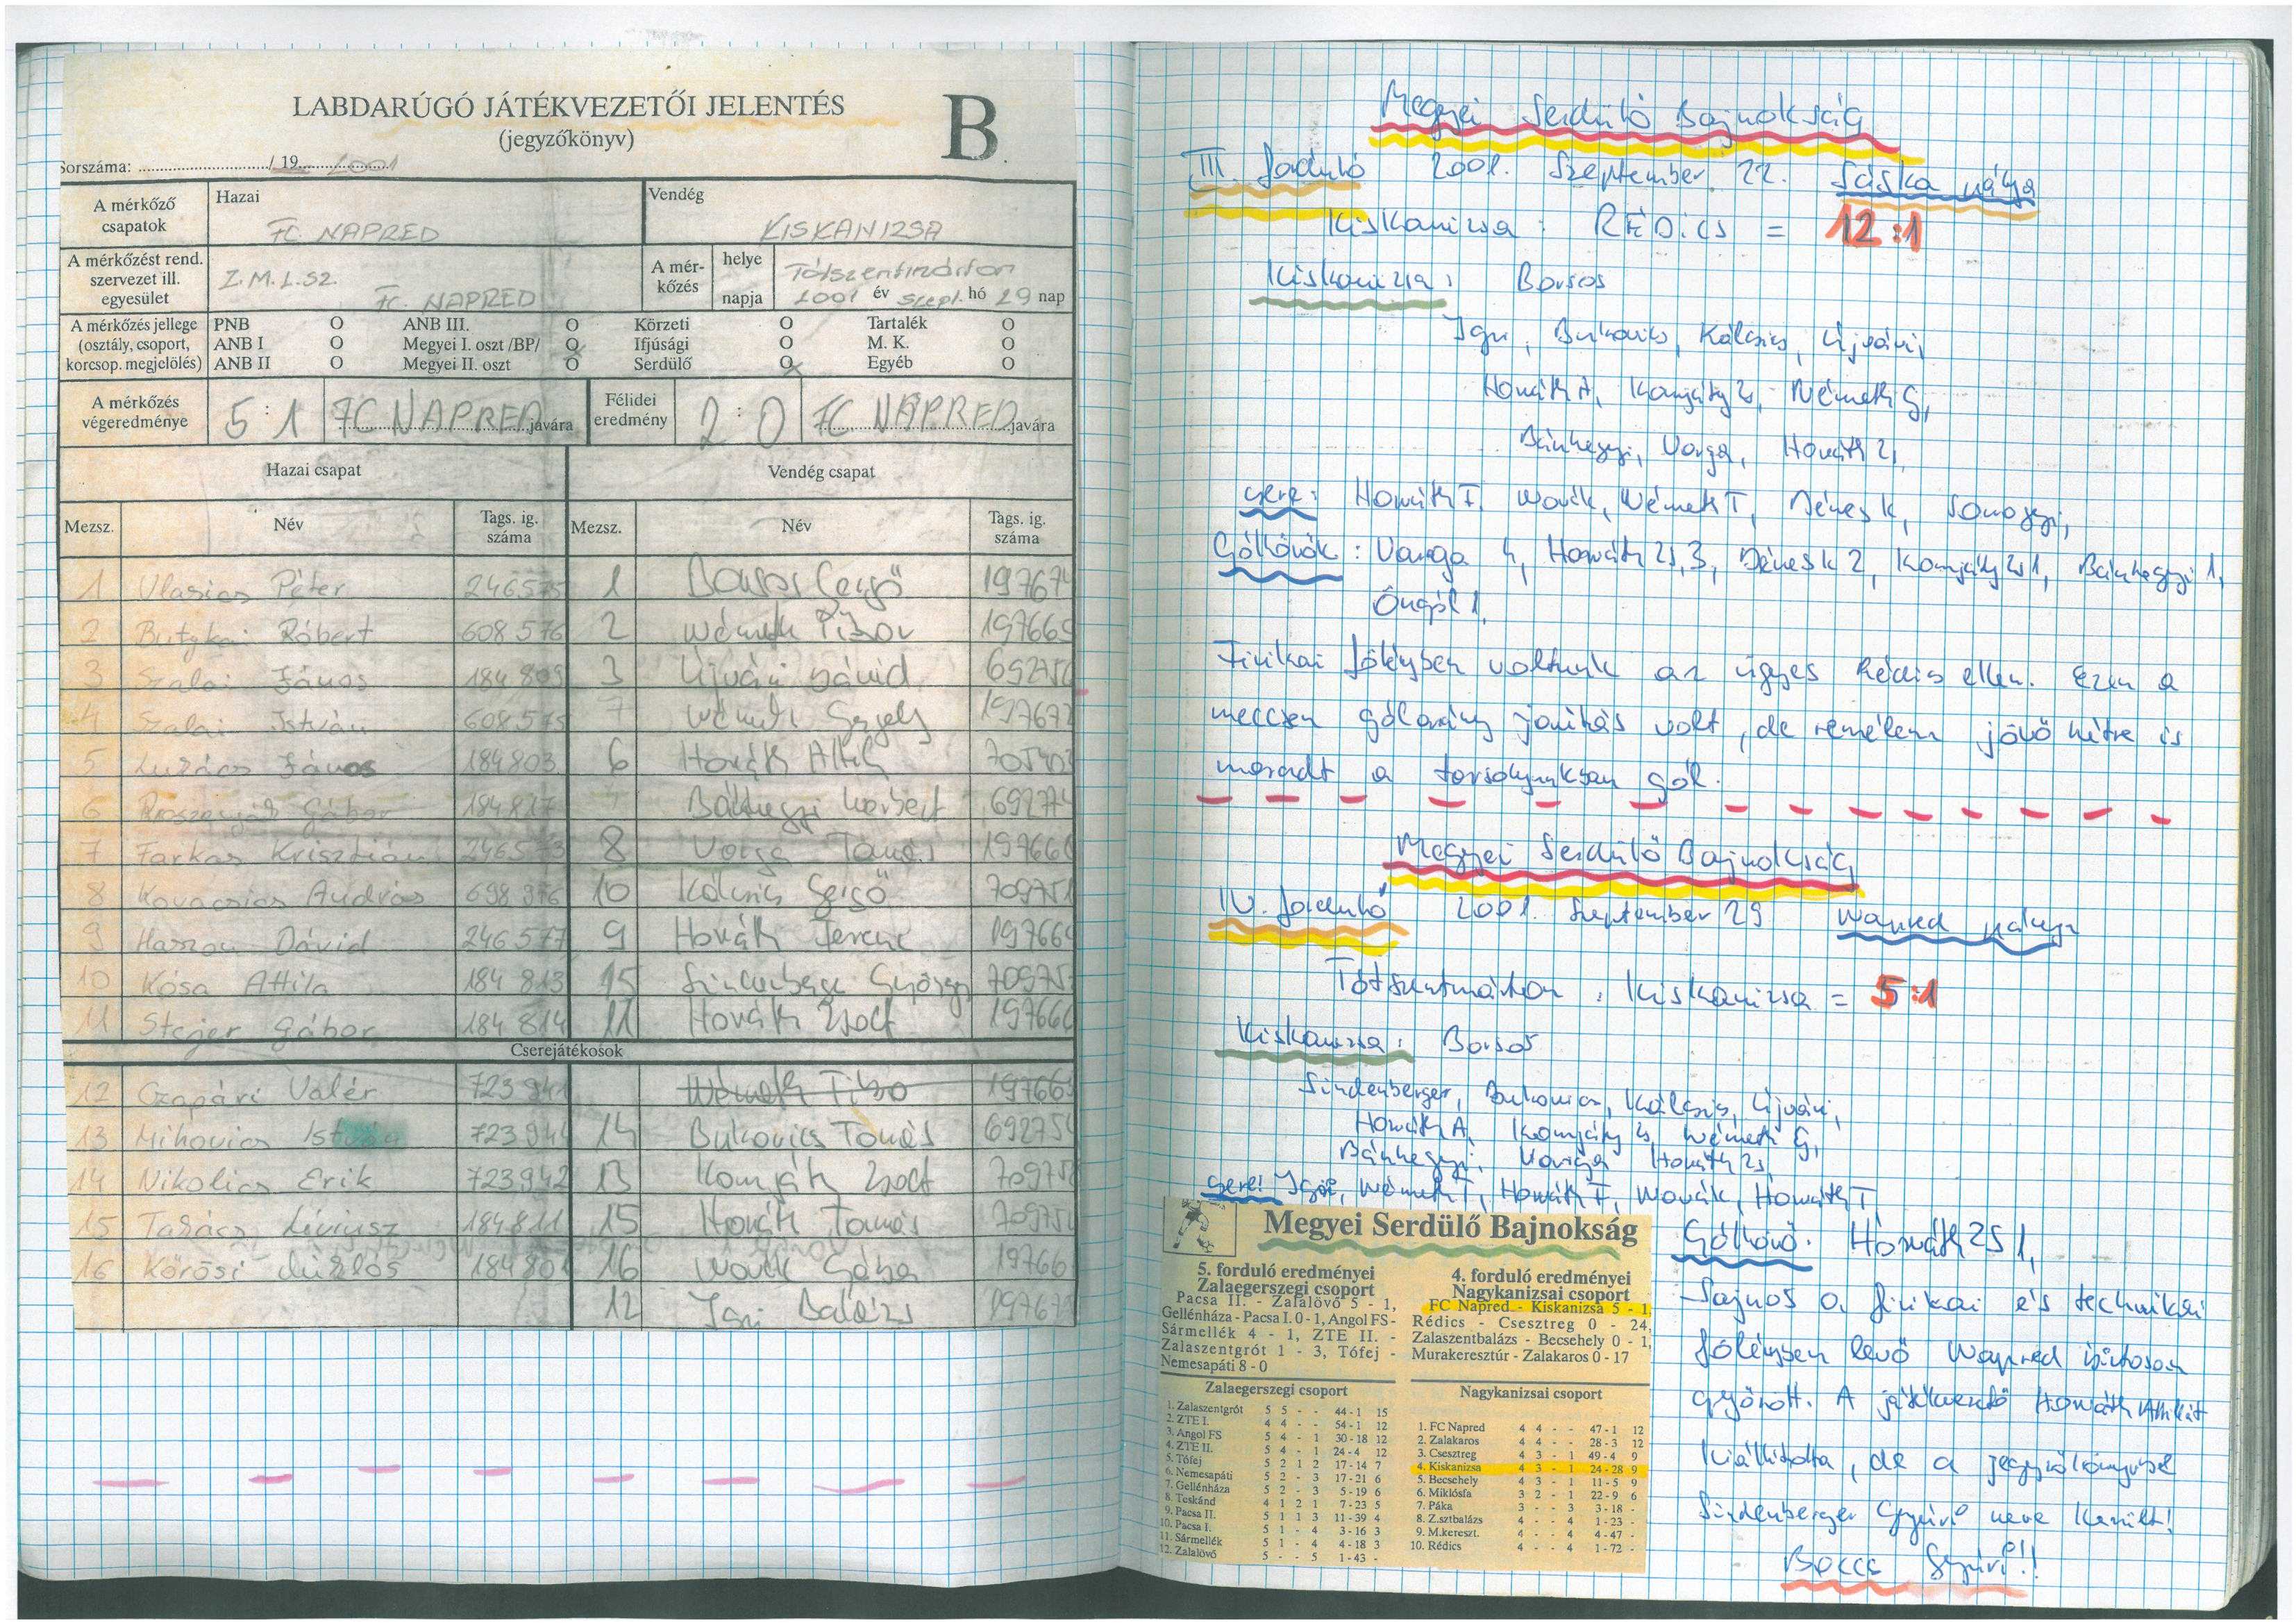 LABDARÚGÓ JÁTÉKVEZETŐI JELENTÉS
(jegyzőkönyv)
B
Sorszáma: / 19 2001
A mérkőző csapatok
Hazai
FC. NAPRED
Vendég
KISKANIZSA
A mérkőzést rend. szervezet ill. egyesület
Z.M.L.SZ.
FC. NAPRED
A mérkőzés
helye
Tótszentmárton
napja
2001 év szept. hó 29 nap
A mérkőzés jellege (osztály, csoport, korcsop. megjelölés)
PNB O ANB III. O Körzeti O Tartalék O
ANB I O Megyei I. oszt /BP/ O Ifjúsági O M. K. O
ANB II O Megyei II. oszt O Serdülő O Egyéb O
A mérkőzés végeredménye
5 : 1 FC NAPRED javára
Félidei eredmény
2 : 0 FC NAPRED javára
Hazai csapat Vendég csapat
Mezsz. Név Tags. ig. száma Mezsz. Név Tags. ig. száma
1 Vlasics Péter 246575 1 Borsos Gergő 197674
2 Butykai Róbert 608576 2 Németh Tibor 197665
3 Szalai János 184809 3 Újvári Dávid 69275
4 Szalai István 608575 7 Németh Gergely 197672
5 Lukács János 184803 6 Horváth Attila 705403
6 Gábor 184817 Bánhegyi Norbert 69274
7 Farkas Krisztián 246573 8 Varga Tamás 19766
8 Kovacsics András 698976 10 Kálcsics Gergő 709751
9 Haszon Dávid 246577 9 Horváth Ferenc 19766
10 Kósa Attila 184 813 15 Sindenberger György 70975
11 Stejer Gábor 184 814 11 Horváth Zsolt 19766
Cserejátékosok
12 Czapári Valér 723941 Németh Tibo 19766
13 Mihovics István 723941 14 Bukovics Tamás 69275
14 Nikolics Erik 723942 13 Komját Zsolt 70975
15 Takács Líviusz 184811 15 Horváth Tamás 70975
16 Kőrösi Miklós 184801 16 Novák Géza 19766
12 Igri Balázs 19767
Megyei Serdülő Bajnokság
III. forduló 2001. Szeptember 22. Sáska pálya
Kiskanizsa : RÉDICS = 12:1
Kiskanizsa: Borsos
Igri, Bukovics, Kálcsics, Újvári,
Horváth A, Komjáty Zs, Németh G,
Bánhegyi, Varga, Horváth Zs,
csere: Horváth F, Novák, Németh T, Dénes K, Somogyi,
Gólhövők: Varga 4, Horváth Zs, 3, Dénes K 2, Komjáty Zs 1, Bánhegyi 1,
Öngól 1,
Fizikai fölényben voltunk az ügyes Rédics ellen. Ezen a
meccsen gólarány javítás volt, de remélem jövő hétre is
maradt a tarsolyunkban gól.
Megyei Serdülő Bajnokság
IV. forduló 2001. Szeptember 29 Napred pálya
Tótszentmárton : Kiskanizsa = 5:1
Kiskanizsa: Borsos
Sindenberger, Bukovics, Kálcsics, Újvári,
Horváth A, Komjáty Zs, Németh G,
Bánhegyi, Varga, Horváth Zs,
csere: Igri, Németh T, Horváth F, Novák, Horváth T,
Gólhövő: Horváth Zs 1,
Sajnos a fizikai és technikai
fölényben levő Napred biztosan
győzött. A játékvezető Horváth Attilát
kiállította, de a jegyzőkönyvbe
Sindenberger Gyuri neve került!
Bocce Gyuri!!
Megyei Serdülő Bajnokság
5. forduló eredményei
Zalaegerszegi csoport
Pacsa II. - Zalalövő 5 - 1,
Gellénháza - Pacsa I. 0 - 1, Angol FS -
Sármellék 4 - 1, ZTE II. -
Zalaszentgrót 1 - 3, Tófej -
Nemesapáti 8 - 0
4. forduló eredményei
Nagykanizsai csoport
FC Napred - Kiskanizsa 5 - 1,
Rédics - Csesztreg 0 - 24,
Zalaszentbalázs - Becsehely 0 - 1,
Murakeresztúr - Zalakaros 0 - 17
Zalaegerszegi csoport
1. Zalaszentgrót 5 5 - - 44-1 15
2. ZTE I. 4 4 - - 54-1 12
3. Angol FS 5 4 - 1 30-18 12
4. ZTE II. 5 4 - 1 24-4 12
5. Tófej 5 2 1 2 17-14 7
6. Nemesapáti 5 2 - 3 17-21 6
7. Gellénháza 5 2 - 3 5-19 6
8. Teskánd 4 1 2 1 7-23 5
9. Pacsa II. 5 1 1 3 11-39 4
10. Pacsa I. 5 1 - 4 3-16 3
11. Sármellék 5 1 - 4 4-18 3
12. Zalalövő 5 - - 5 1-43 -
Nagykanizsai csoport
1. FC Napred 4 4 - - 47-1 12
2. Zalakaros 4 4 - - 28-3 12
3. Csesztreg 4 3 - 1 49-4 9
4. Kiskanizsa 4 3 - 1 24-28 9
5. Becsehely 4 3 - 1 11-5 9
6. Miklósfa 3 2 - 1 22-9 6
7. Páka 3 - - 3 3-18 -
8. Z.sztbalázs 4 - - 4 1-23 -
9. M.kereszt. 4 - - 4 4-47 -
10. Rédics 4 - - 4 1-72 -